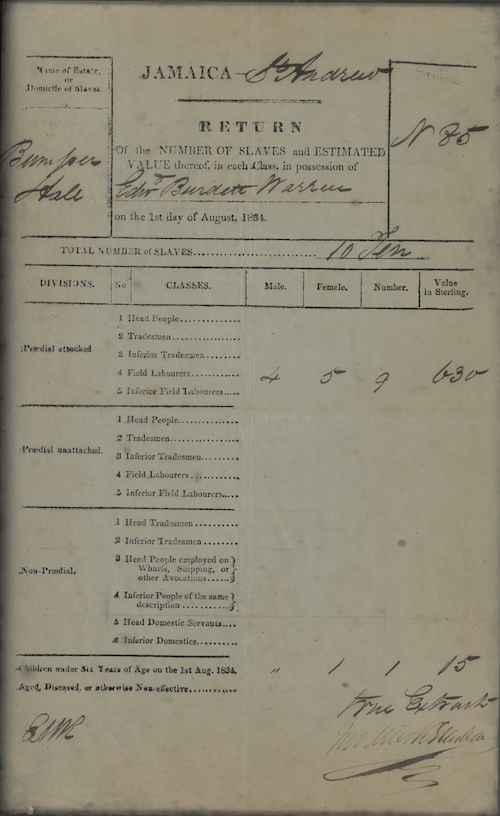 Name of Estate,
or
Domicile of Slaves.
JAMAICA St Andrew
RETURN
Of the NUMBER OF SLAVES and ESTIMATED
VALUE thereof, in each Class, in possession of
Edwd Burdett Warren
on the 1st day of August, 1834.
Bumper
Hall
N 85
TOTAL NUMBER of SLAVES.............................. 10 Ten
DIVISIONS. No CLASSES. Male. Female. Number. Value in Sterling.
Prædial attached
1 Head People...............
2 Tradesmen.................
3 Inferior Tradesmen........
4 Field Labourers........... 4 5 9 630
5 Inferior Field Labourers.....
Prædial unattached.
1 Head People,..............
2 Tradesmen.................
3 Inferior Tradesmen.........
4 Field Labourers...........
5 Inferior Field Labourers.....
Non-Prædial.
1 Head Tradesmen..........
2 Inferior Tradesmen.........
3 Head People employed on
Wharfs, Shipping, or
other Avocations......
4 Inferior People of the same
description...........
5 Head Domestic Servants....
6 Inferior Domestics..........
Children under Six Years of Age on the 1st Aug. 1834. " 1 1 15
Aged, Diseased, or otherwise Non-effective............
True Extract